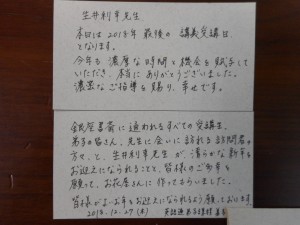 生井利幸先生
本日は2018年最後の講義受講日
となります。
今年も濃厚な時間と機会を賦与して
いただき、本当にありがとうございました。
濃密なご指導を賜り、幸せです。
銀座書斎に通われるすべての受講生、
若手の皆さん、先生に会いに訪れる訪問者の
方々、と、生井利幸先生が、清らかな新年を
お迎えになられることと、皆様のご多幸を
願って、お花屋さんに作ってもらいました。
皆様がよいお年をお迎えになられるよう願っております。
2018.12.27(木)